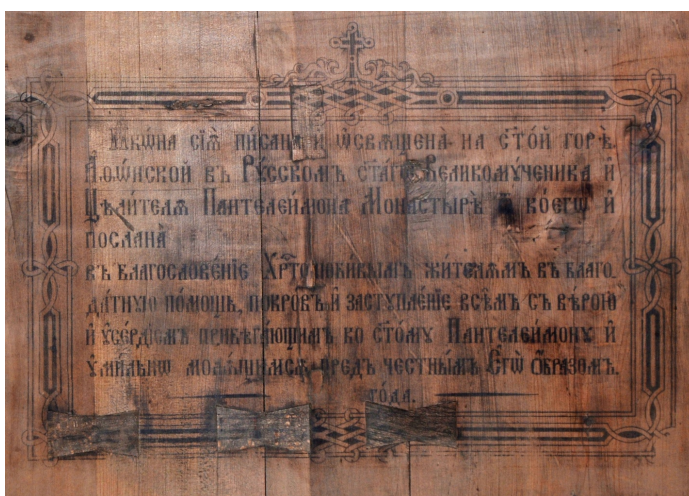 Їкѡна сїѧ пи́сана и ѡсвѧщена̀ на ст҃о́й горѣ̀
Аѳѡ́нской въ Рꙋ́сскомъ ст҃а́гѡ Великомꙋ́ченика и҆
Цѣли́телѧ Пантелеи́мона Монастырѣ̀ и҆
посла́на
въ благослове́нїе жи́телѧмъ въ благо
да́тнꙋю по́мощь, покро́въ и҆ застꙋпле́нїе всѣ̑мъ съ вѣ́рою
и҆ ᲂу҆се́рдїемъ прибѣга́ющимъ ко ст҃о́мꙋ Пантелеи́монꙋ и҆
ᲂу҆ми́льнѡ молѧ́щимсѧ предъ че́стнымъ Е҆гѡ̀ О҆́бразомъ.
го́да.